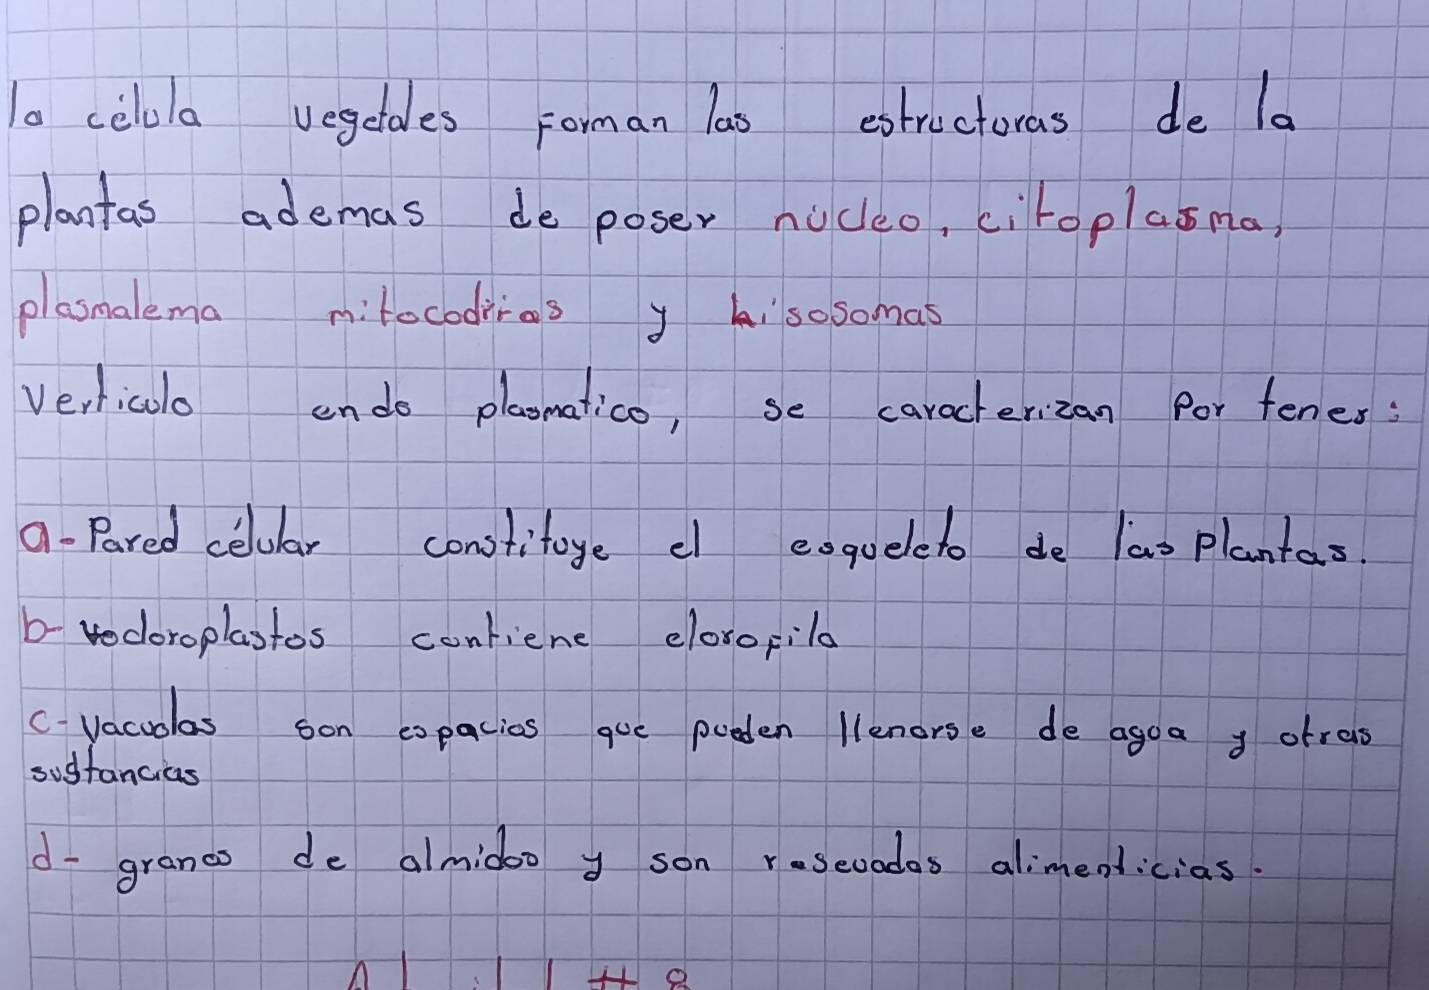 la célula vegetales Forman las estructuras de la
plantas ademas de poser núcleo, citoplasma,
plasmalema mitocodrias y hisosomas
verticulo endo plasmatico, se caracterizan Por tener:
a- Pared célular constituye el esqueleto de las Plantas.
b- vocloroplastos contiene clorofila
c- Vacuolas son espacios que pueden llenarse de agua y otras
sustancias
d- granos de almidoo y son resevadas alimenticias.
# 8